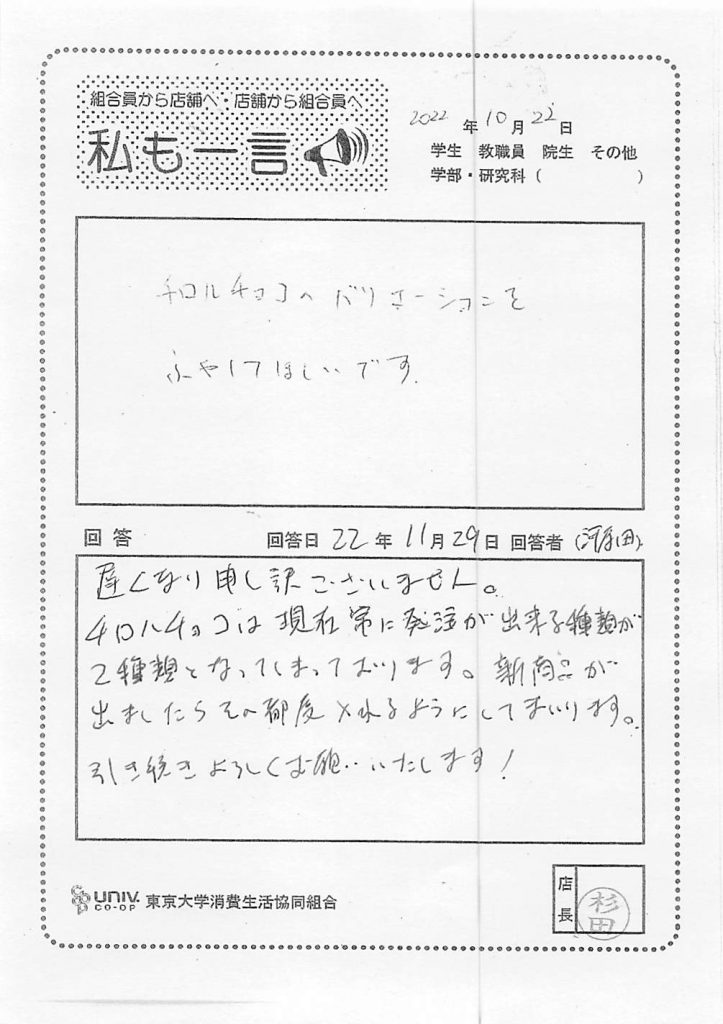 組合員から店舗へ・店舗から組合員へ
私も一言
2022年10月22日
学生 教職員 院生 その他
学部・研究科( )
チロルチョコのバリエーションを
ふやしてほしいです。
回答 回答日 22年 11月29日 回答者(河原田)
遅くなり申し訳ございません。
チロルチョコは現在常に発注が出来る種類が
2種類となってしまっております。新商品が
出ましたらその都度入れるようにしてまいります。
引き続きよろしくお願いいたします!
店長
杉田
UNIV.
CO-OP
東京大学消費生活協同組合